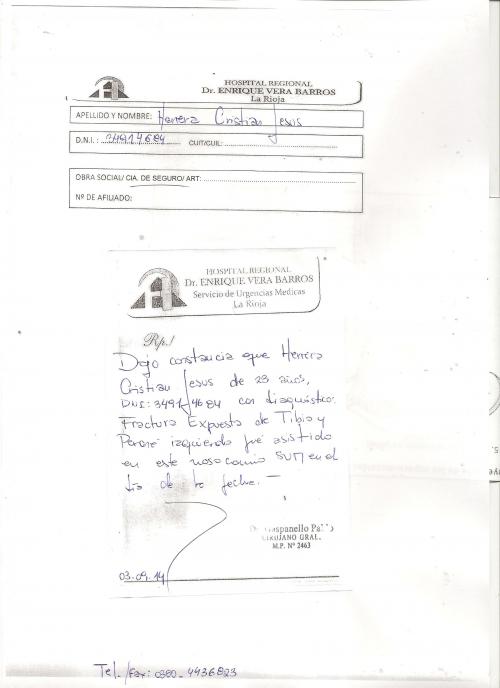 HOSPITAL REGIONAL
Dr. ENRIQUE VERA BARROS
La Rioja
APELLIDO Y NOMBRE: Herrera Cristian Jesus
D.N.I.: 34914684 CUIT/CUIL:
OBRA SOCIAL/ CIA. DE SEGURO/ ART:
Nº DE AFILIADO:
HOSPITAL REGIONAL
Dr. ENRIQUE VERA BARROS
Servicio de Urgencias Medicas
La Rioja
Rp./
Dejo constancia que Herrera
Cristian Jesus de 23 años,
DNI: 34914684 con diagnóstico:
Fractura Expuesta de Tibia y
Peroné izquierdo fué asistido
en este nosocomio SUM en el
día de la fecha.-
ispanello
CIRUJANO GRAL.
M.P. Nº 2463
03.09.14
Tel./Fax: 0380-4436823